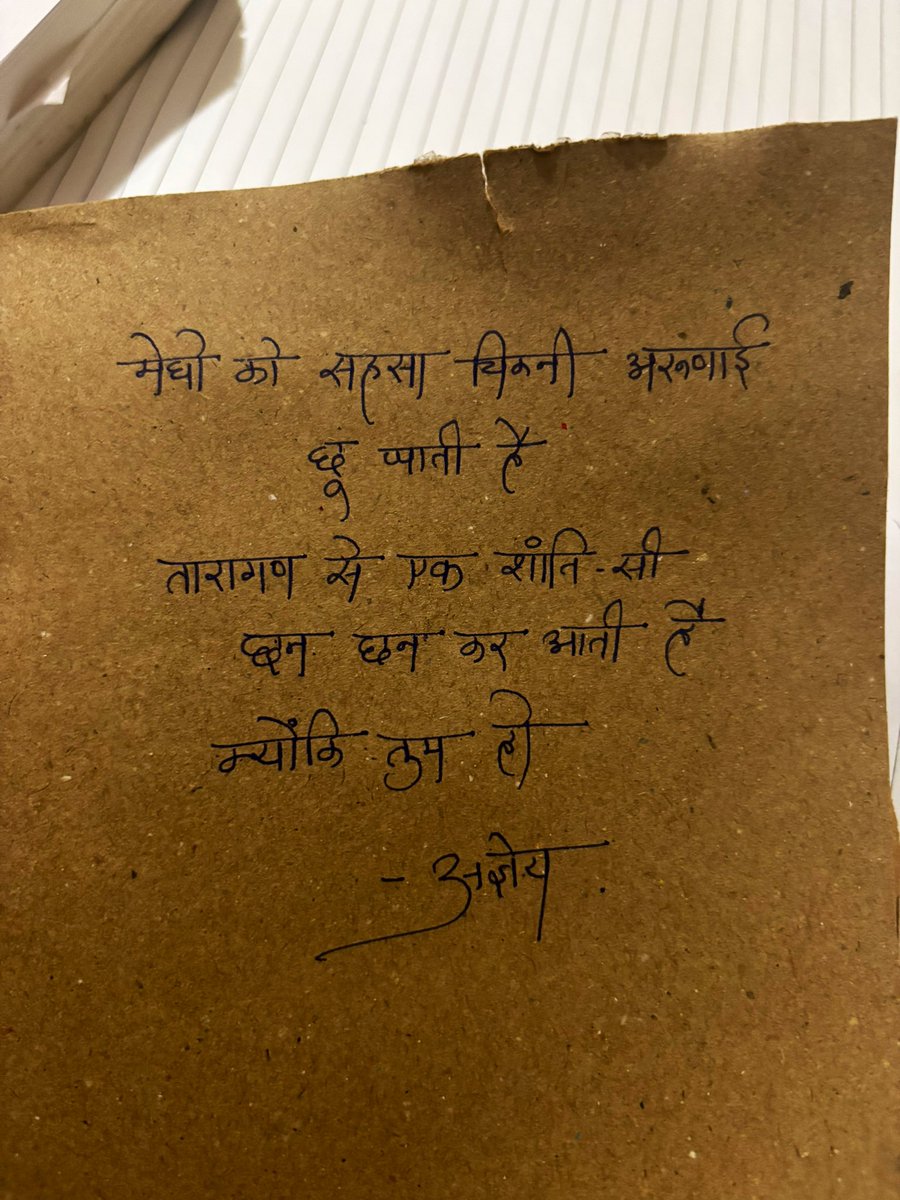 मेघो को सहसा चिकनी अरूणाई
छू जाती है
तारागण से एक शांति-सी
छन छन कर आती है
क्योंकि तुम हो
- अज्ञेय